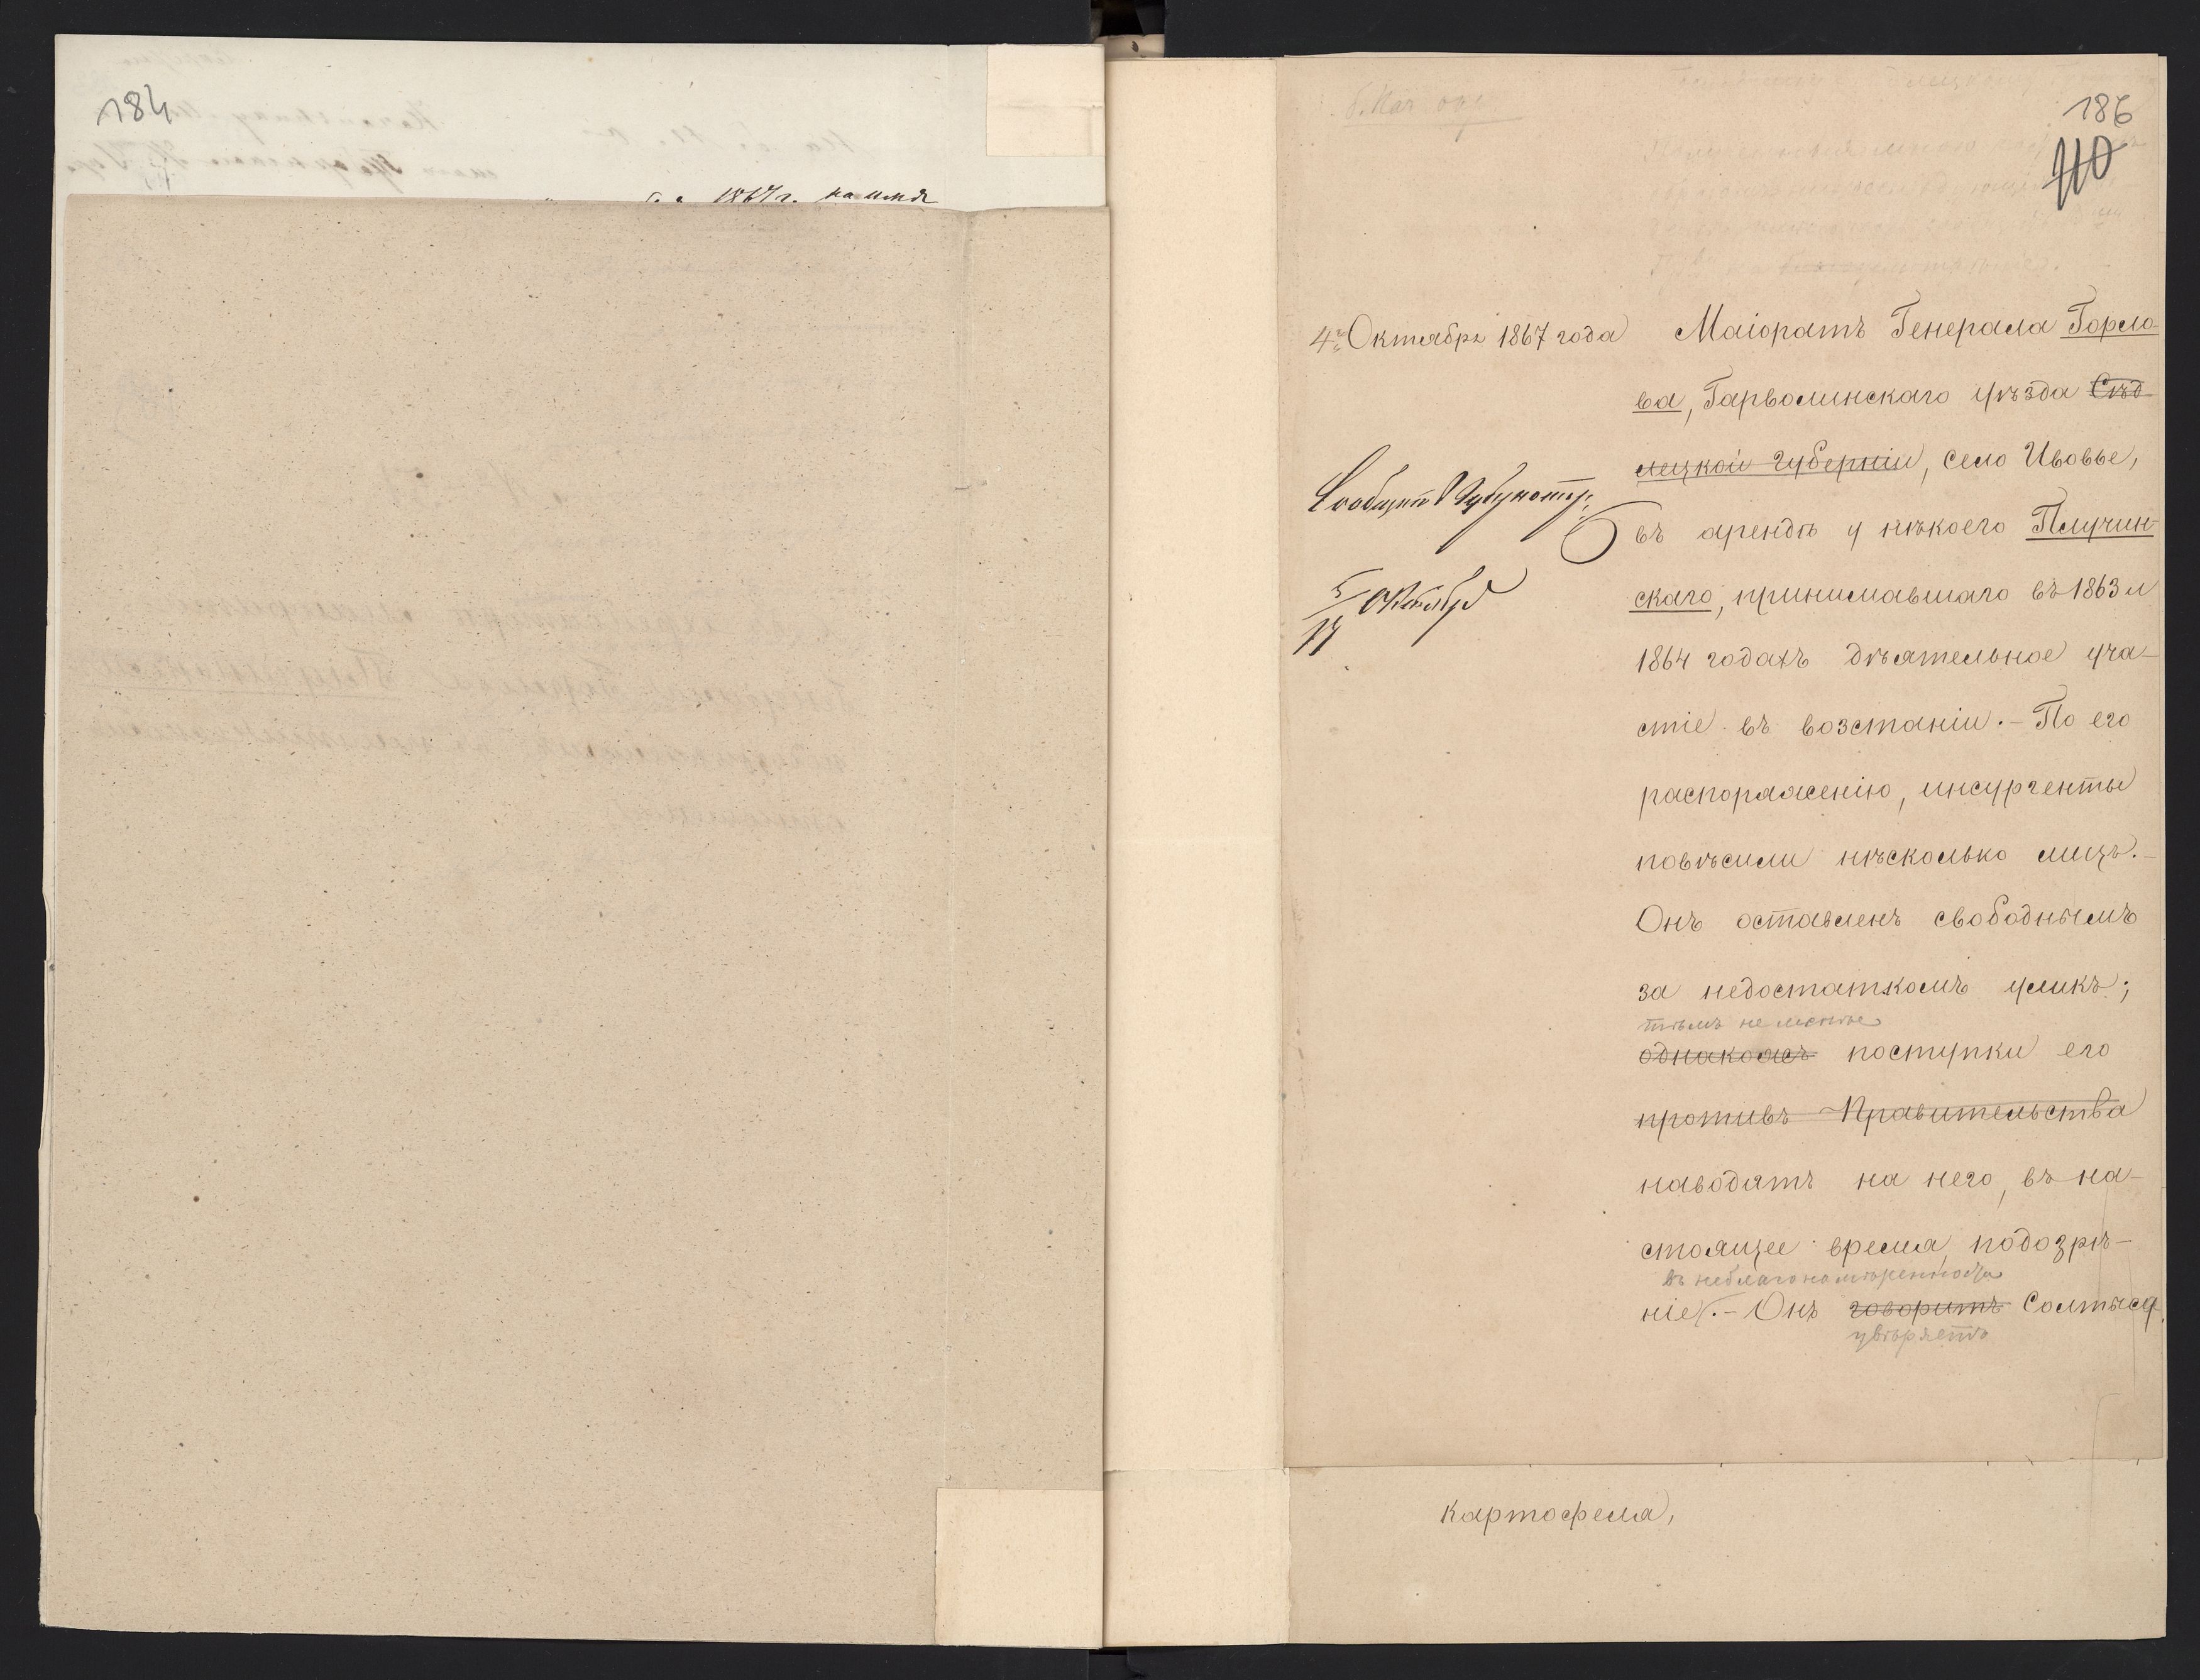 184
1867 г. на имя
186
110
4го Октября 1867 года
Маіоратъ Генерала Горло-
ва, Гарволинскаго уѣзда Сѣд-
лецкой губерніи, село Ивовье,
въ арендѣ у нѣкоего Плучин-
скаго, принимавшаго въ 1863 и
1864 годахъ дѣятельное уча-
стіе въ возстаніи.- По его
распоряженію, инсургенты
повѣсили нѣсколько лицъ.-
Онъ оставленъ свободнымъ
за недостаткомъ уликъ;
тѣмъ не менѣе
однакожъ поступки его
противъ Правительства
наводятъ на него, въ на-
стоящее время, подозрѣ-
въ неблагонамѣренности
ніе.- Онъ говоритъ Солтыса
увѣряетъ
Сообщить
5/17 Октября
картофеля,